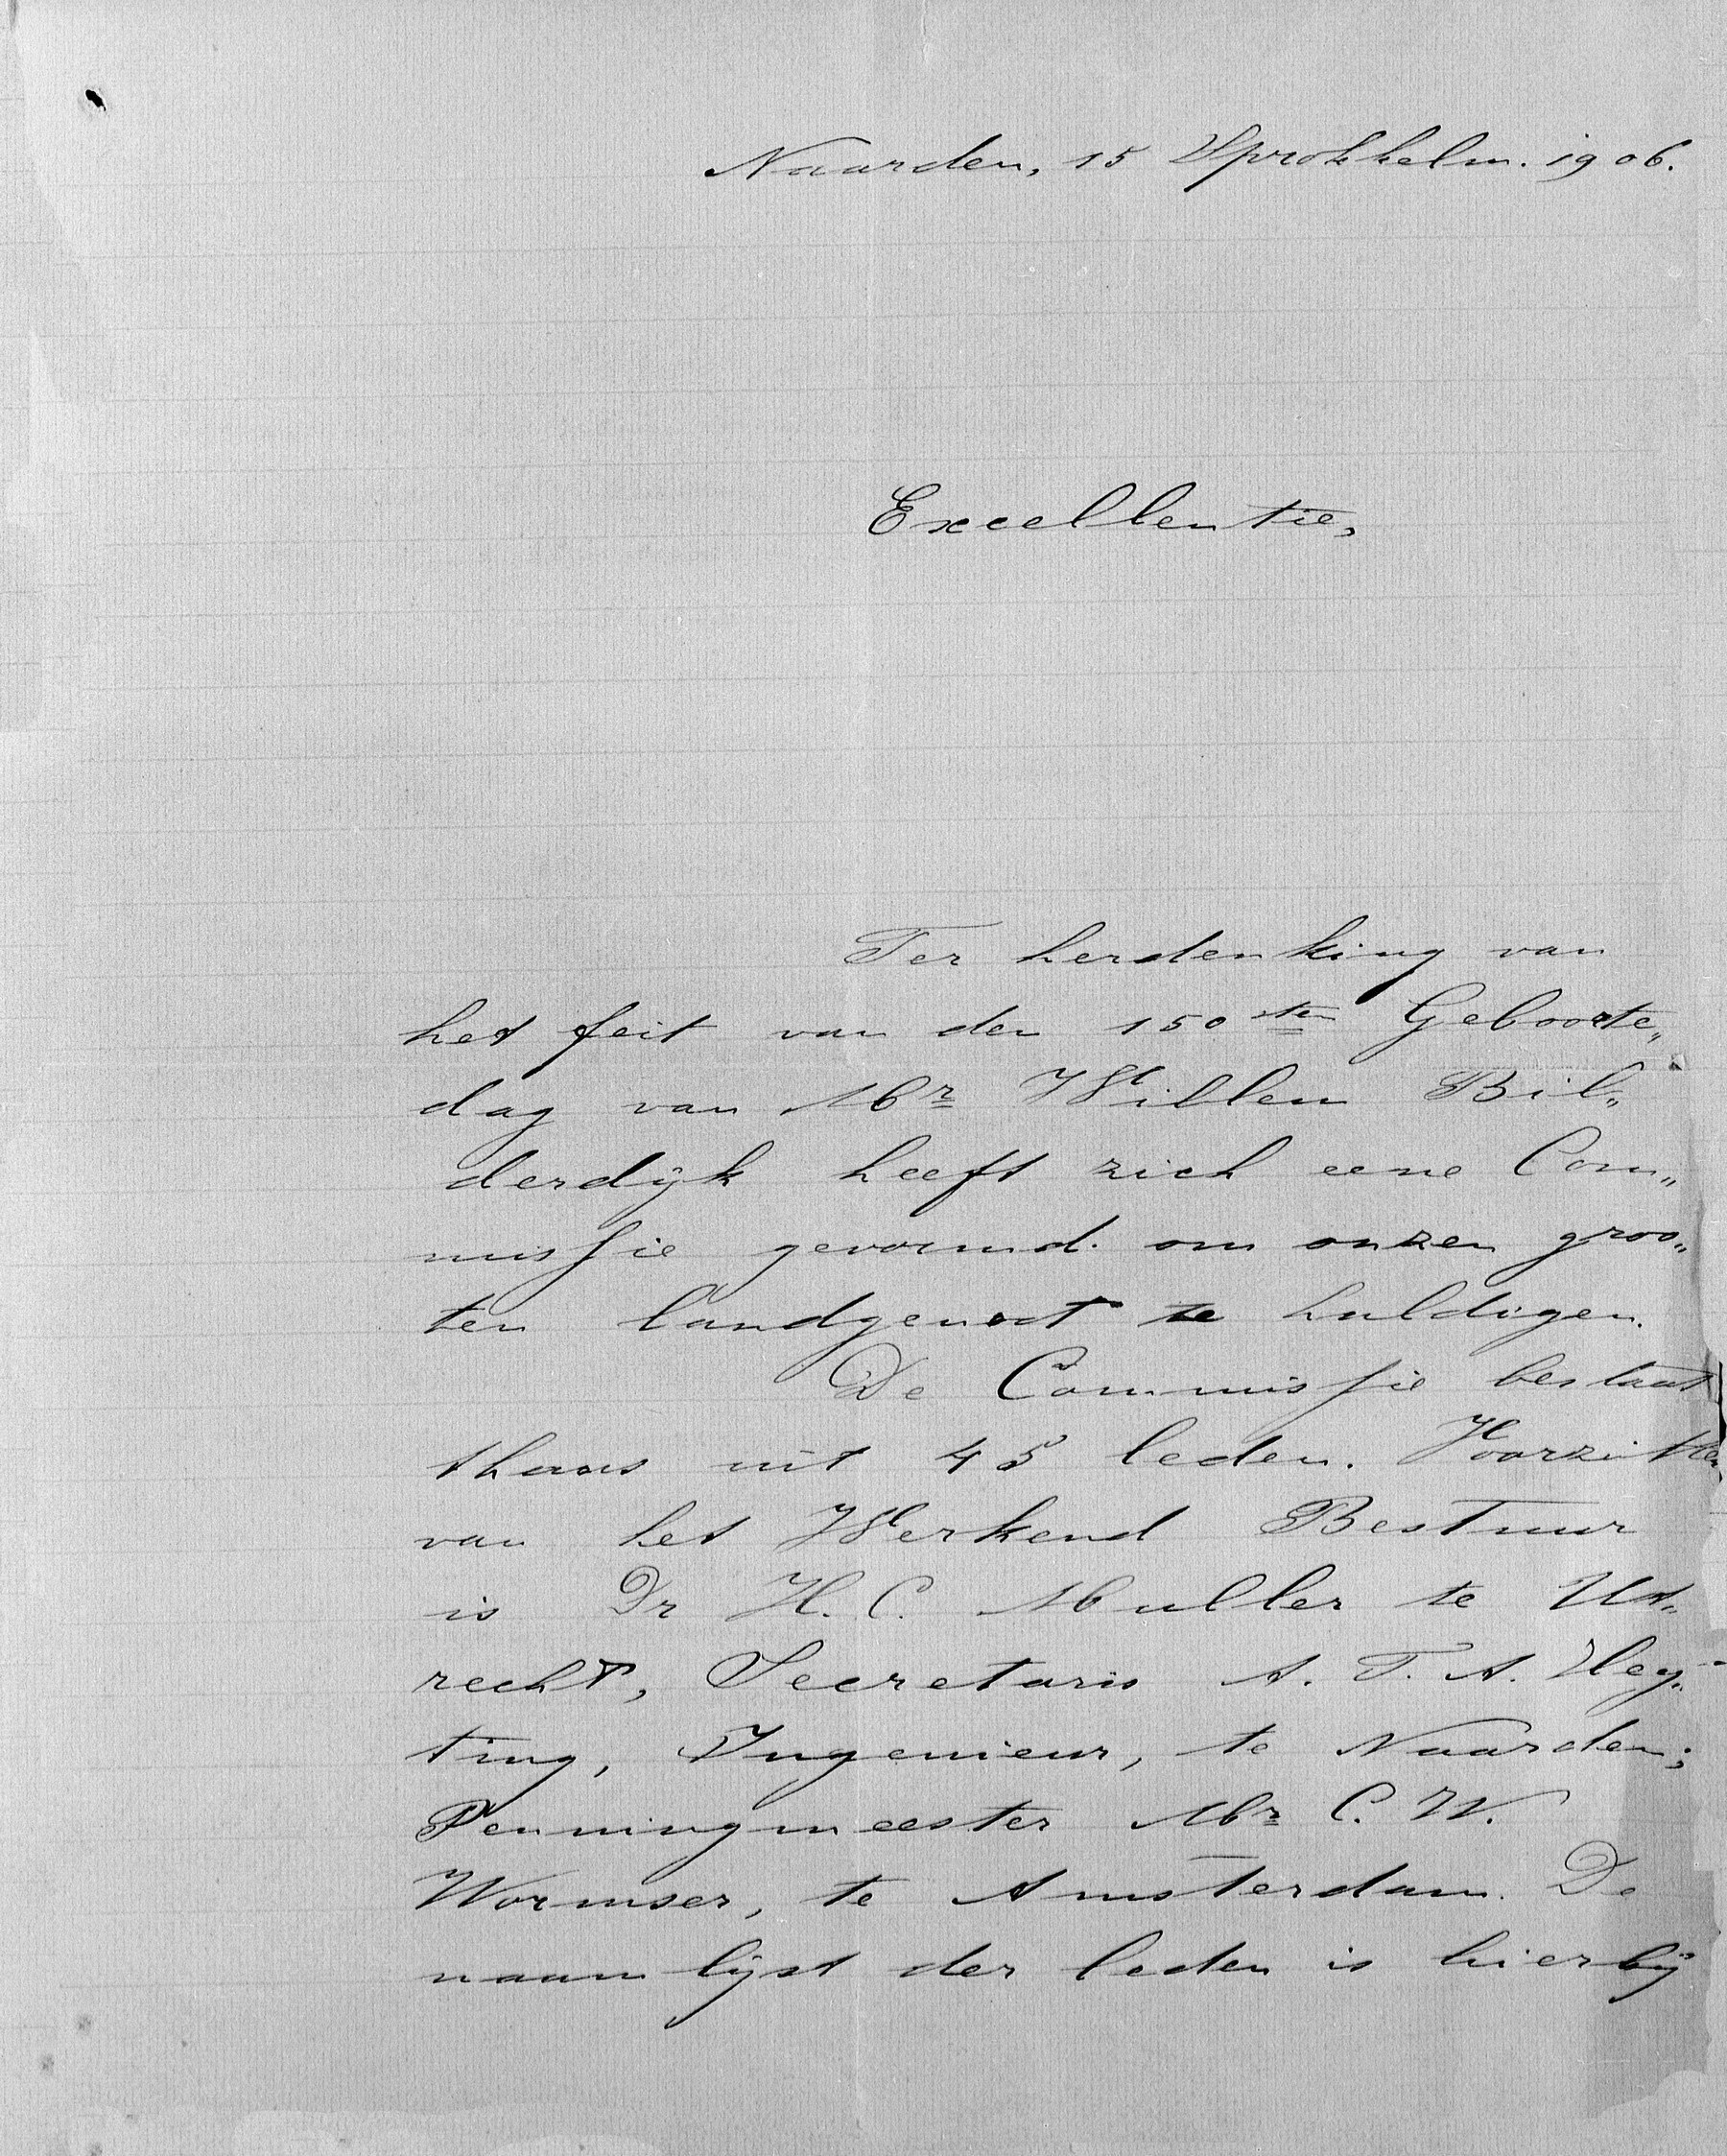 Naarden, 15 Sprokkelm. 1906.
Excellentie,
Ter herdenking van
het feit van den 150sten Geboorte„
dag van Mr Willem Bil„
derdijk heeft zich eene Com„
missie gevormd om onzen groo„
ten landgenoot te huldigen.
De Commissie bestaat
thans uit 45 leden. Voorzitter
van het Werkend Bestuur
is Dr H. C. Muller te Ut„
recht, Secretaris A. T. A. Hey„
ting, Ingenieur, te Naarden;
Penningmeester Mr C. W.
Wormser, te Amsterdam. De
naamlijst der leden is hierbij